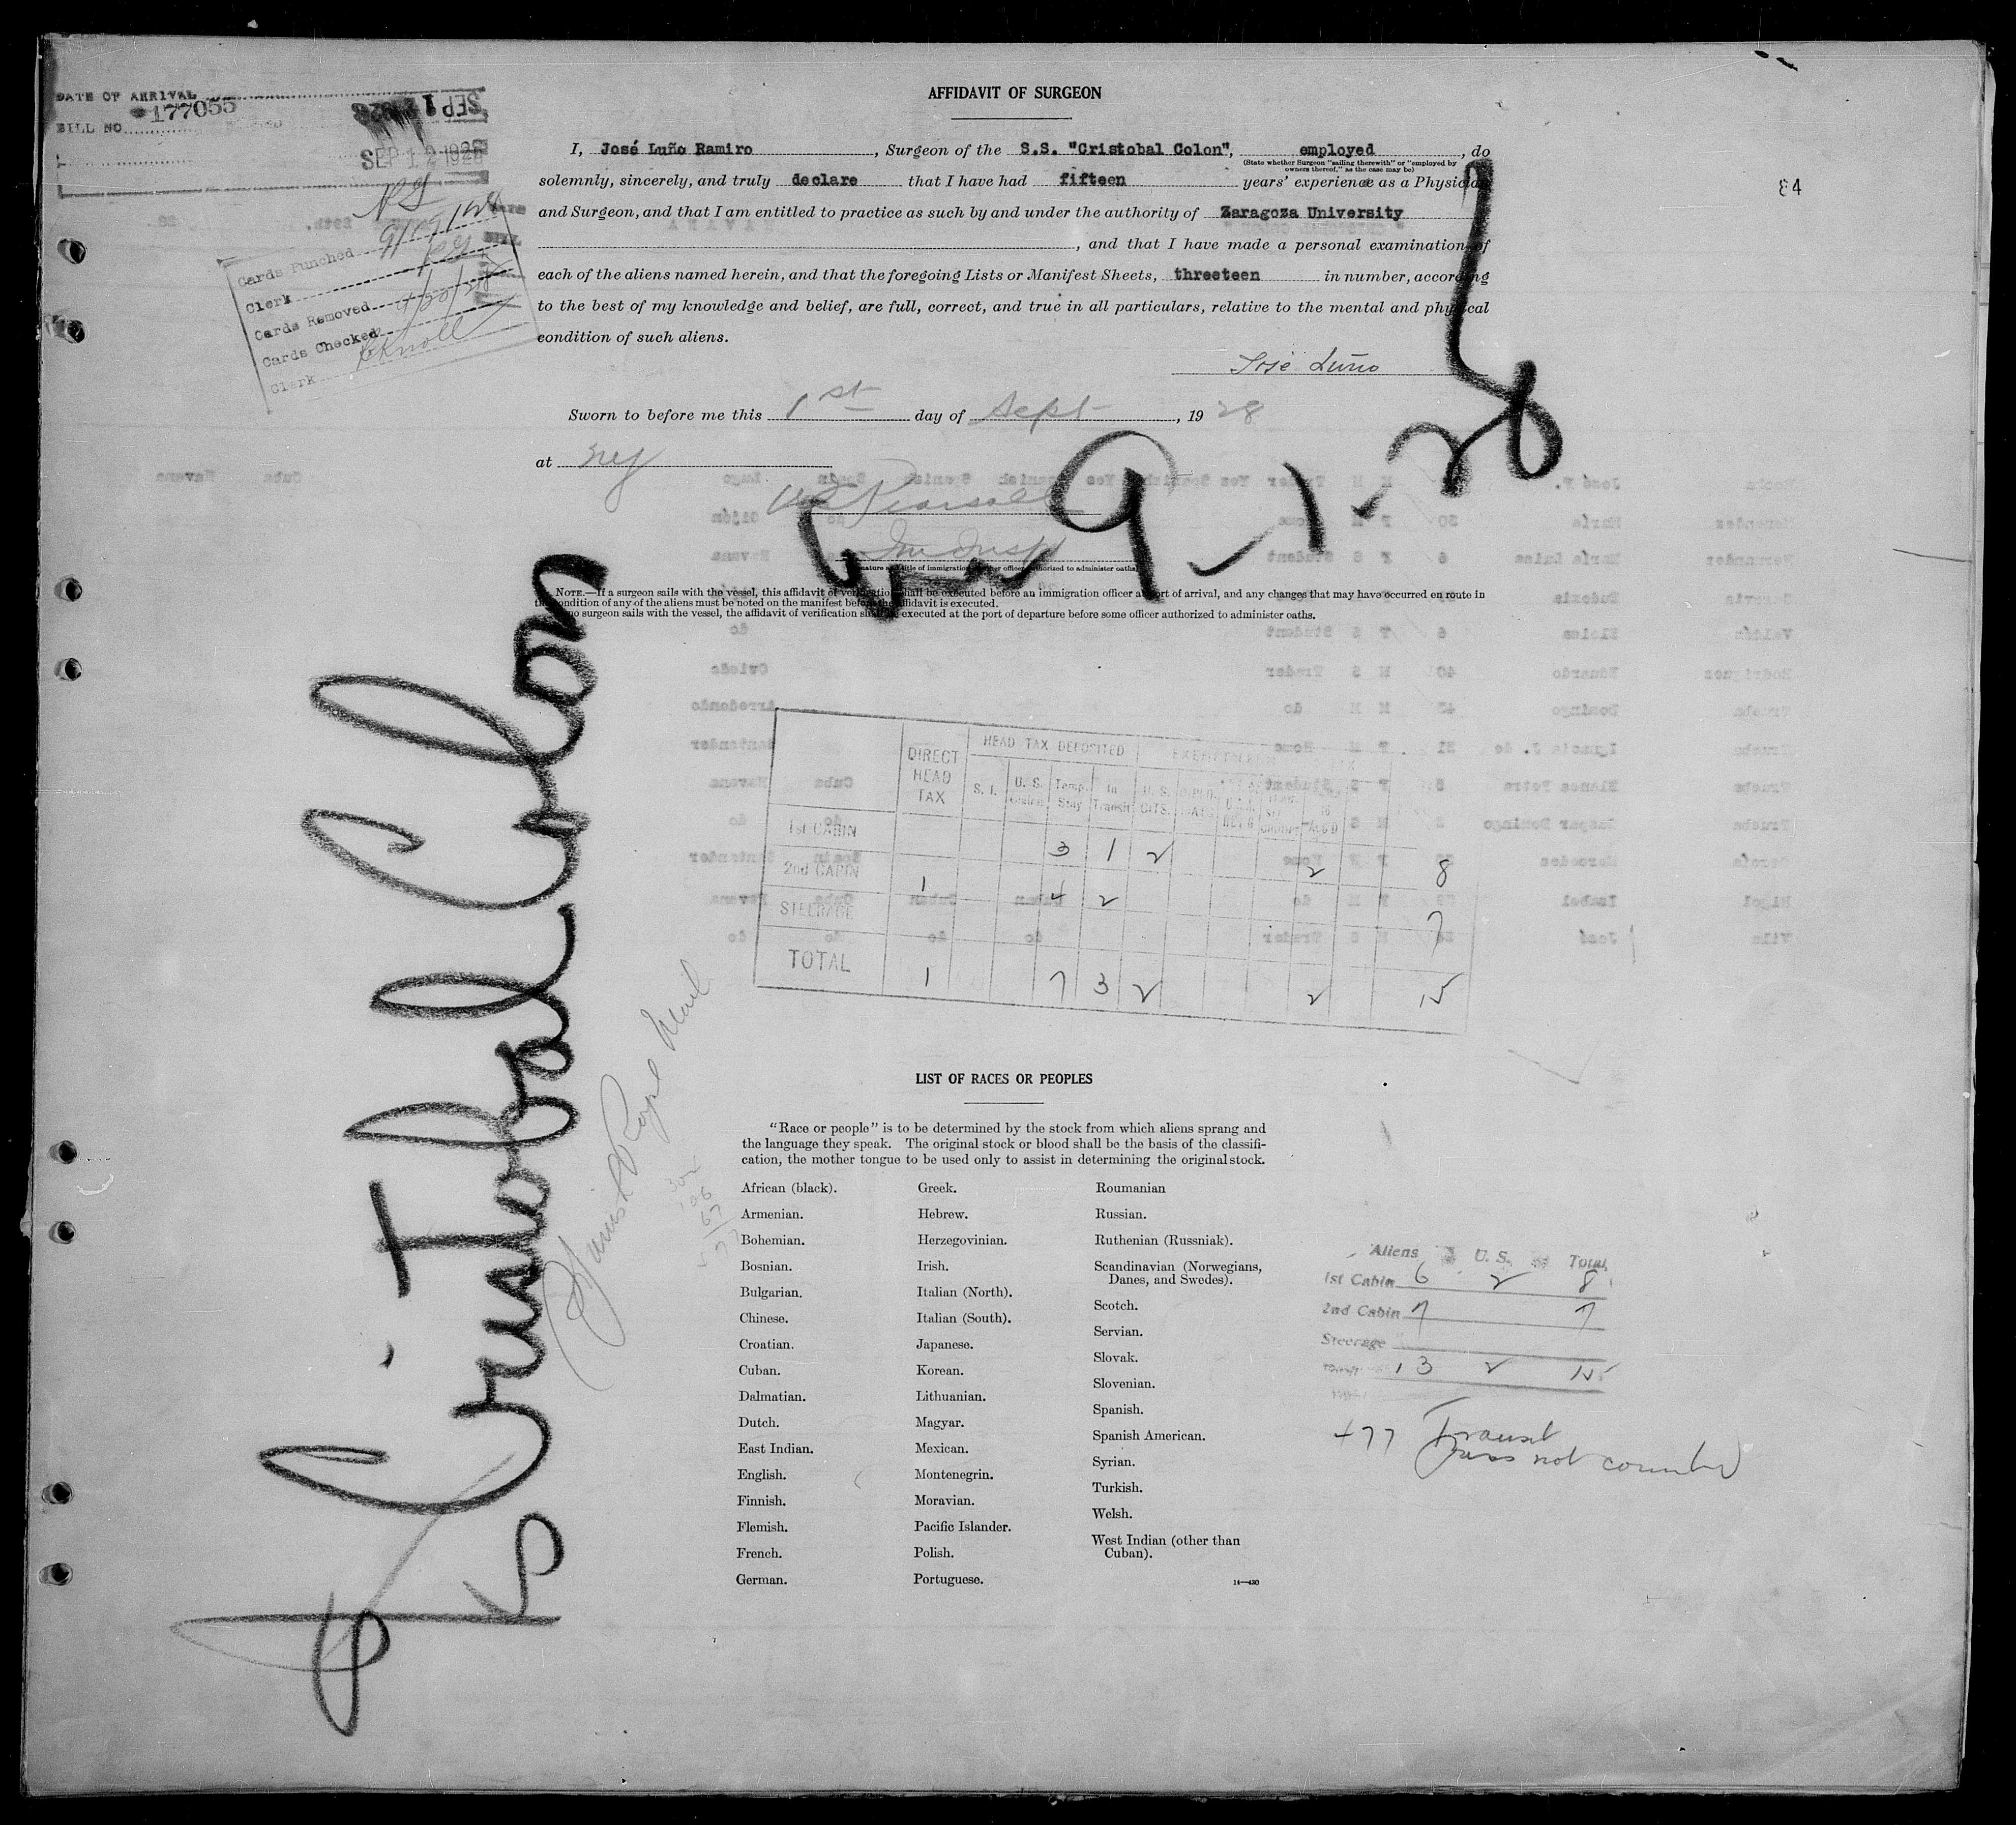 DATE OF ARRIVAL
177055
BILL NO.
SEP 12 1928
SEP 12 1928
Cards Punched 9/19/28
Clerk
Cards Removed
Cards Checked
Clerk
84
AFFIDAVIT OF SURGEON
I, José Luño Ramiro, Surgeon of the S.S. "Cristobal Colon", employed, do
(State whether Surgeon "sailing therewith" or "employed by
owners thereof," as the case may be)
solemnly, sincerely, and truly declare that I have had fifteen years' experience as a Physician
and Surgeon, and that I am entitled to practice as such by and under the authority of Zaragoza University
, and that I have made a personal examination of
each of the aliens named herein, and that the foregoing Lists or Manifest Sheets, threeteen in number, according
to the best of my knowledge and belief, are full, correct, and true in all particulars, relative to the mental and physical
condition of such aliens.
José Luño
Sworn to before me this 1st day of Sept, 1928
at NY
Pearsall
Imm Insp
9-1-28
(Signature and title of immigration or other officer authorized to administer oaths.)
NOTE.—If a surgeon sails with the vessel, this affidavit of verification shall be executed before an immigration officer at port of arrival, and any changes that may have occurred en route in
the condition of any of the aliens must be noted on the manifest before the affidavit is executed.
If no surgeon sails with the vessel, the affidavit of verification shall be executed at the port of departure before some officer authorized to administer oaths.
Cristobal Colon
Spanish Royal Mail
HEAD TAX DEPOSITED
DIRECT HEAD TAX
S. I.
U. S.
Temp. Stay
In Transit
U. S. CITS.
1st CABIN 3 1 2 2 8
2nd CABIN 1 4 2 7
STEERAGE
TOTAL 1 7 3 2 2 15
LIST OF RACES OR PEOPLES
"Race or people" is to be determined by the stock from which aliens sprang and
the language they speak. The original stock or blood shall be the basis of the classifi-
cation, the mother tongue to be used only to assist in determining the original stock.
African (black).
Armenian.
Bohemian.
Bosnian.
Bulgarian.
Chinese.
Croatian.
Cuban.
Dalmatian.
Dutch.
East Indian.
English.
Finnish.
Flemish.
French.
German.
Greek.
Hebrew.
Herzegovinian.
Irish.
Italian (North).
Italian (South).
Japanese.
Korean.
Lithuanian.
Magyar.
Mexican.
Montenegrin.
Moravian.
Pacific Islander.
Polish.
Portuguese.
Roumanian
Russian.
Ruthenian (Russniak).
Scandinavian (Norwegians,
Danes, and Swedes).
Scotch.
Servian.
Slovak.
Slovenian.
Spanish.
Spanish American.
Syrian.
Turkish.
Welsh.
West Indian (other than
Cuban).
14—430
Aliens U. S. Total
1st Cabin 6 2 8
2nd Cabin 7 7
Steerage
13 2 15
+77 Transit
Pass not counted